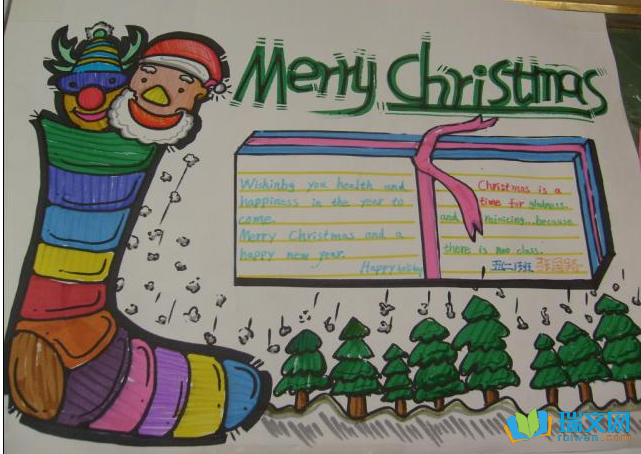 Merry Christmas
Wishinby you health and
happiness in the year to
come.
Merry Christmas and a
happy new year.
Happy
Christmas is a
time for gladness
and reinicing...because
there is noo class.
五(二)班
瑞文网